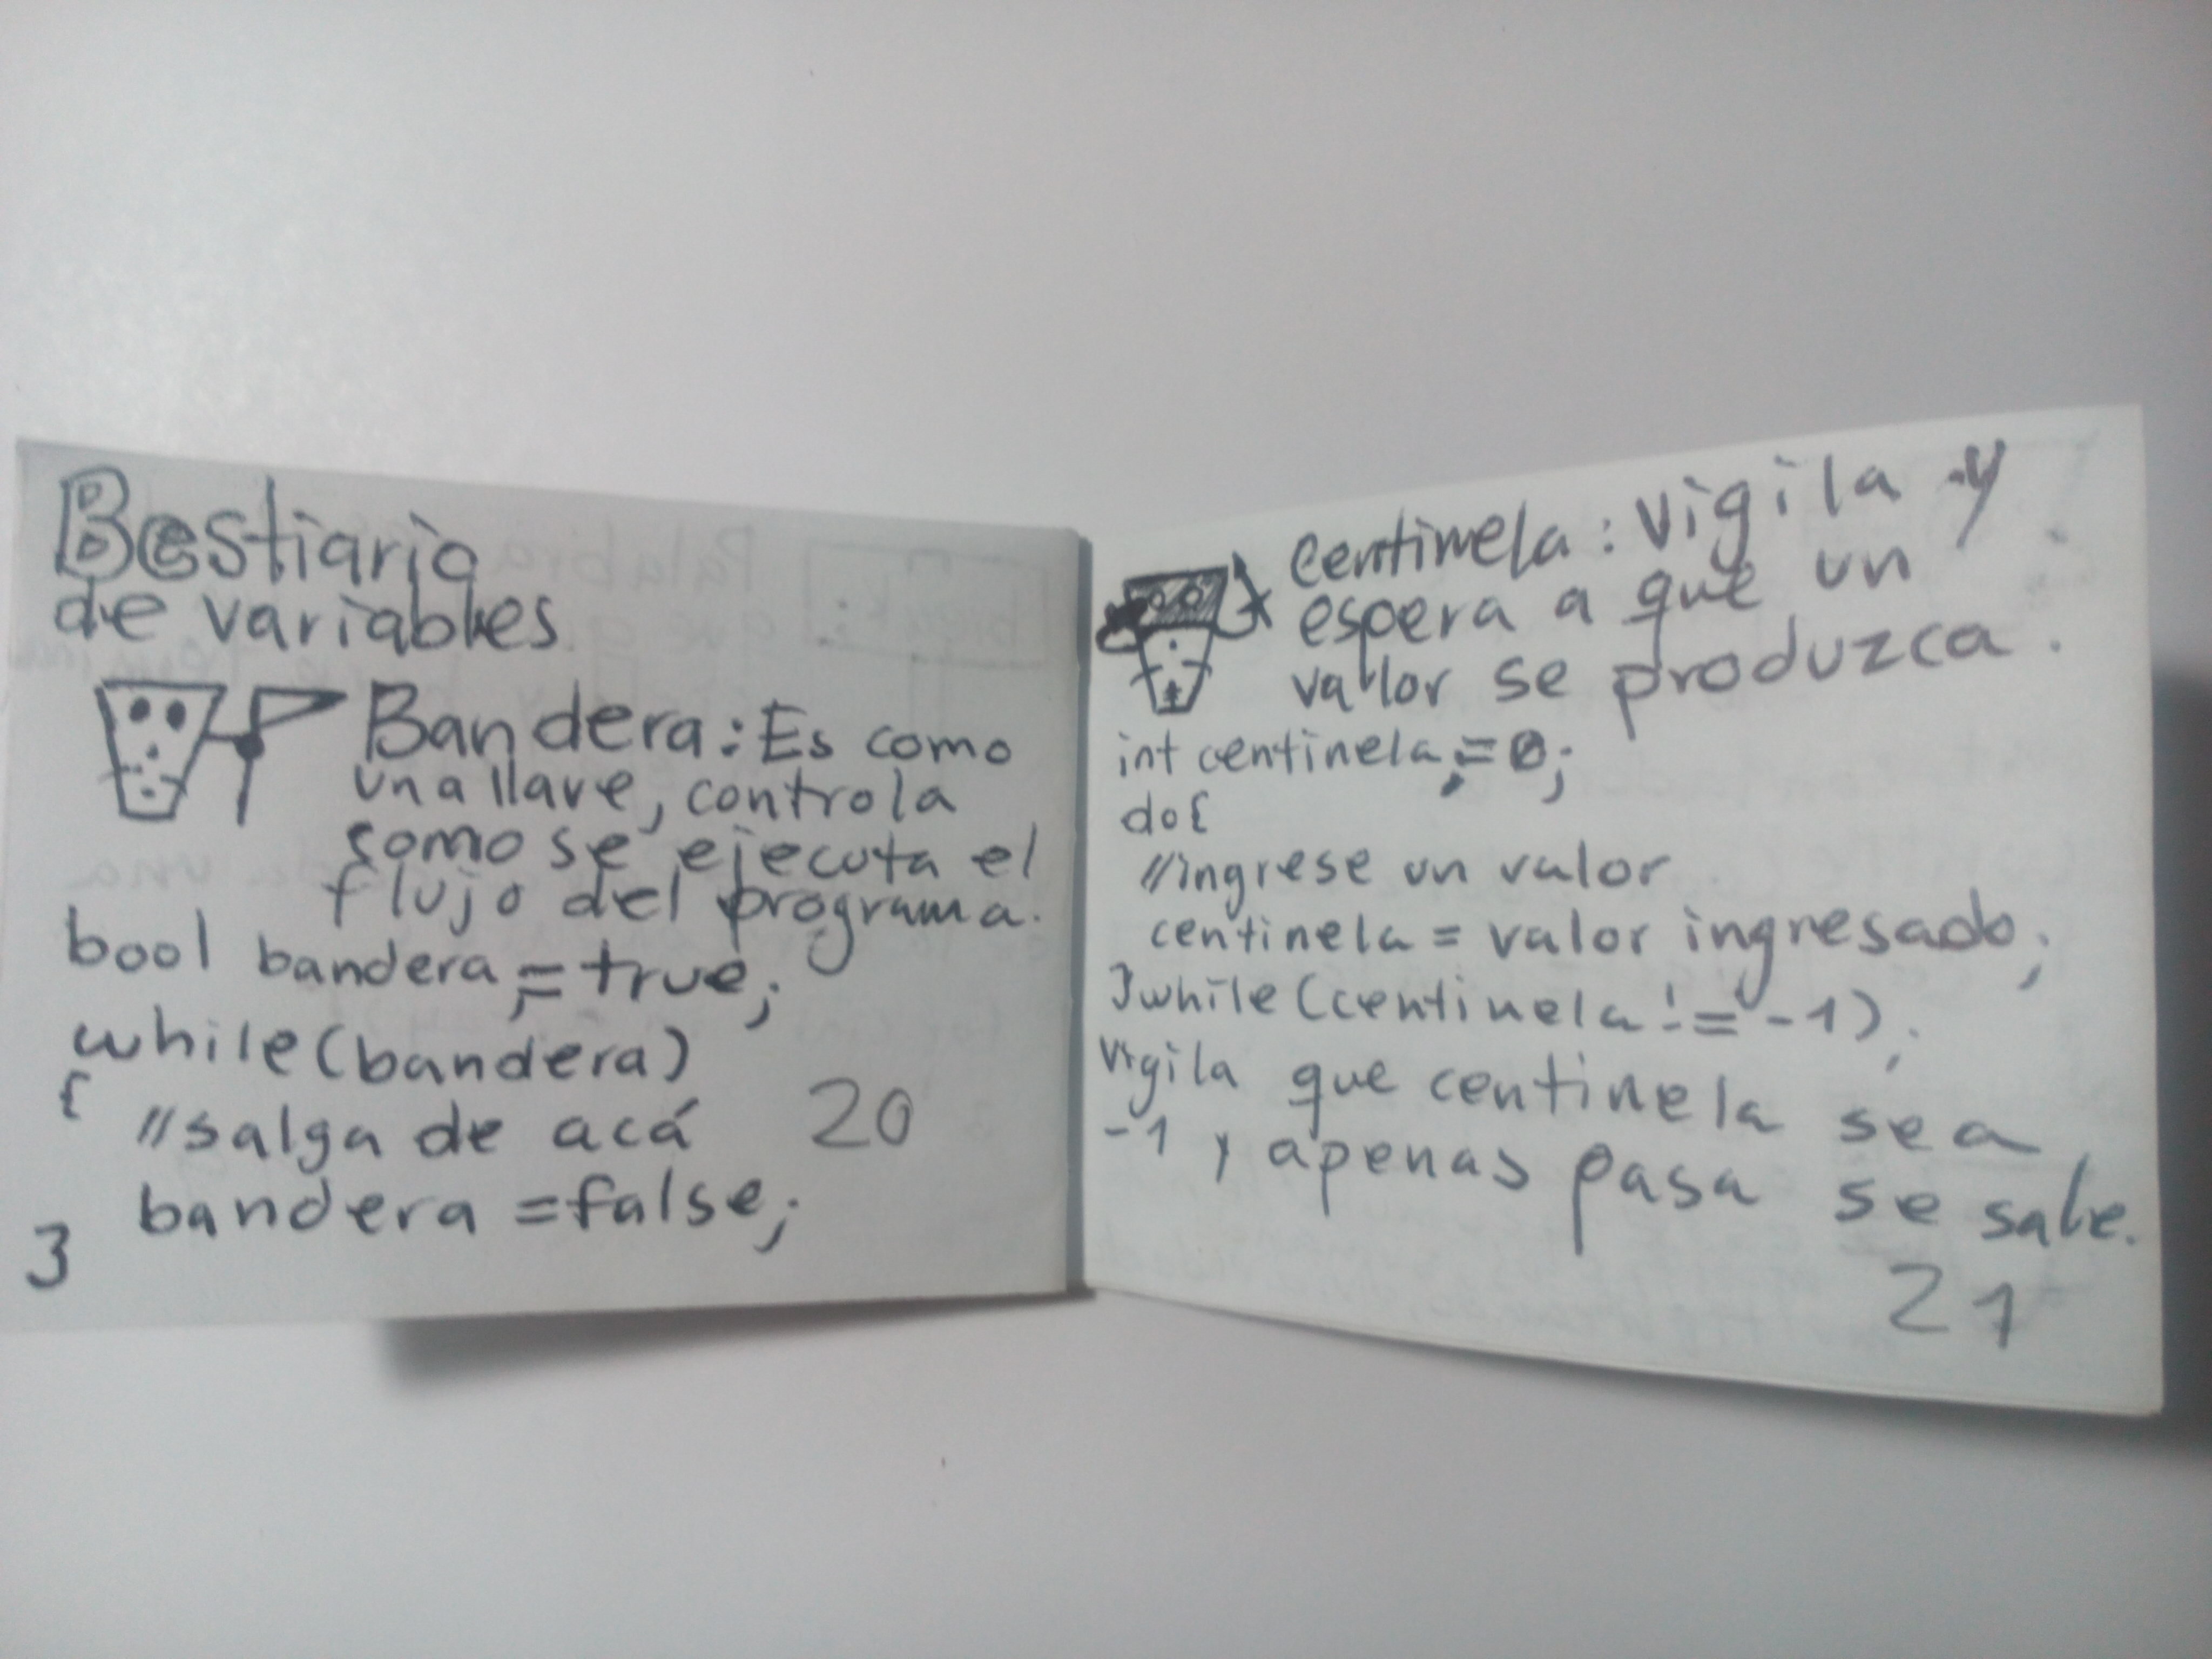 Bestiario
de variables
Bandera: Es como
una llave, controla
como se ejecuta el
flujo del programa.
bool bandera = true;
while(bandera)
{ //salga de acá
bandera = false;
}
20
Centinela: vigila y
espera a que un
valor se produzca.
int centinela = 0;
do{
//ingrese un valor
centinela = valor ingresado;
}while(centinela != -1);
vigila que centinela sea
-1 y apenas pasa se sale.
21